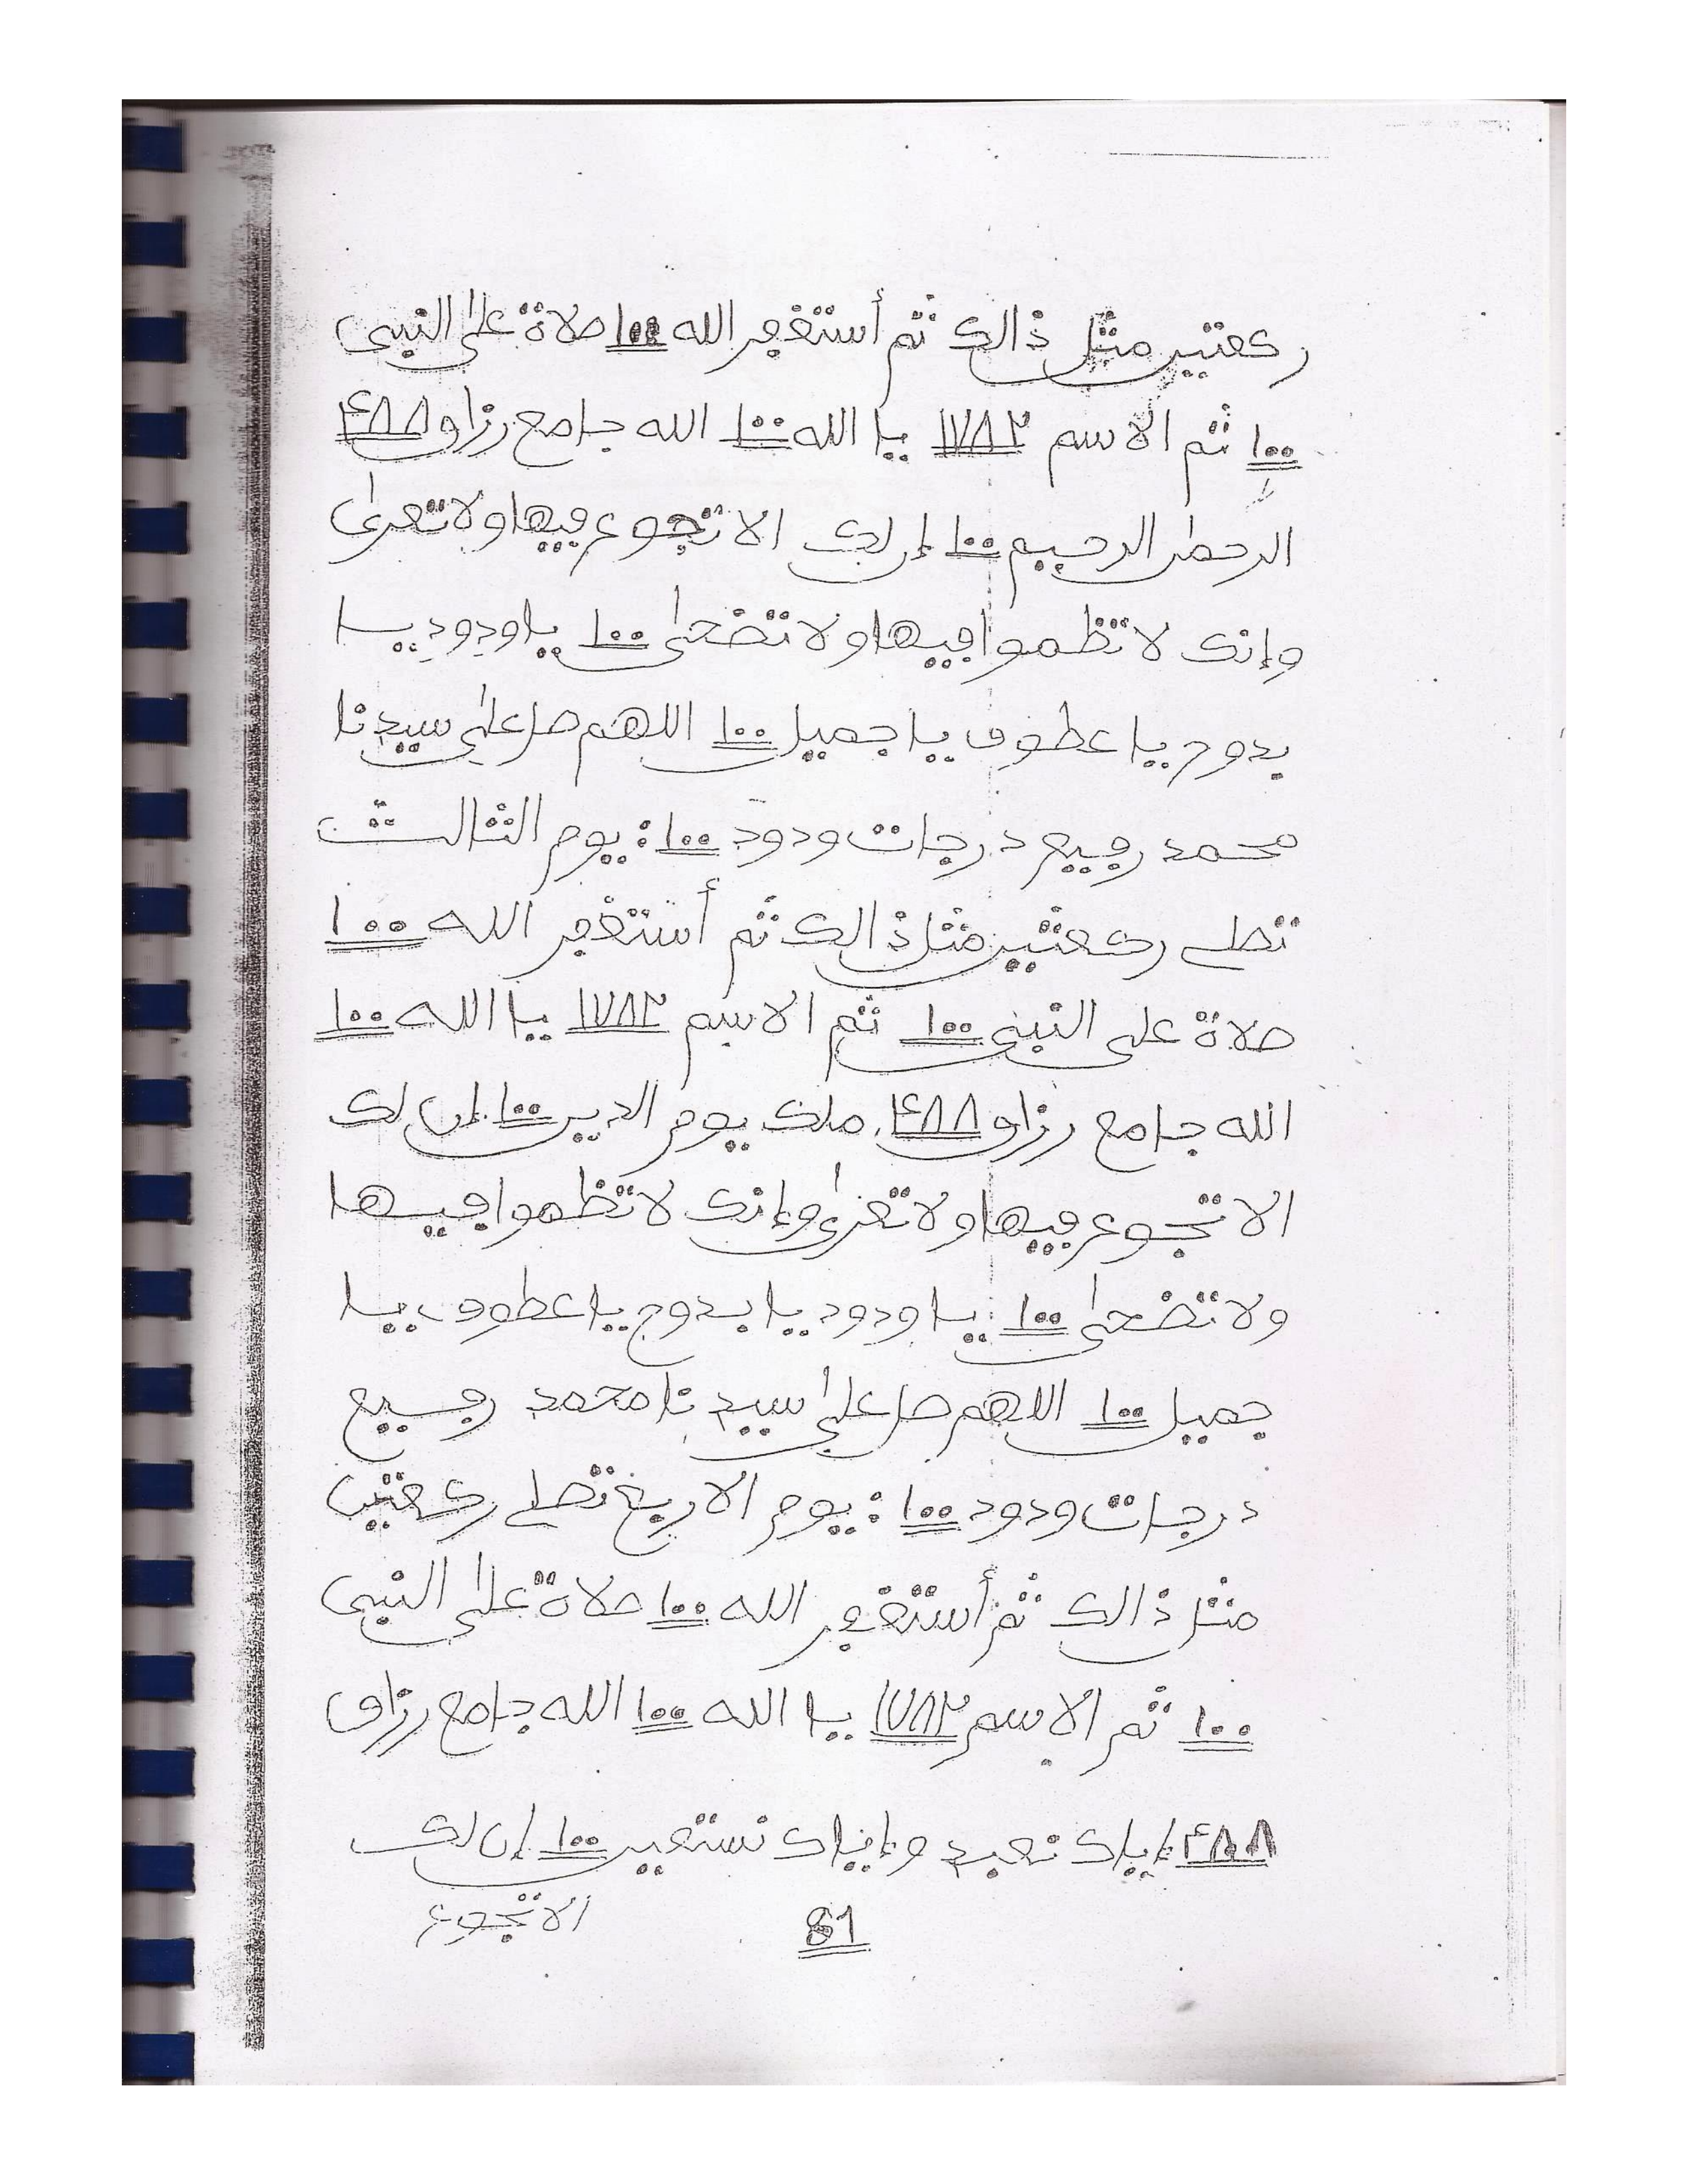 ركعتين مثل ذالك ثم أستغفر الله ١٠٠ صلاة على النبى
١٠٠ ثم الاسم ١٧٨٢ يا الله ١٠٠ الله جامع رزاق ٤٨٨
الرحمن الرحيم ١٠٠ إن لك الا تجوع فيها ولا تعرى
وإنك لا تظموا فيها ولا تضحى ١٠٠ يا ودود يا
بدوح يا عطوف يا جميل ١٠٠ اللهم صل على سيدنا
محمد رفيع درجات ودود ١٠٠: يوم الثالث
تصلى ركعتين مثل ذالك ثم أستغفر الله ١٠٠
صلاة على النبى ١٠٠ ثم الاسم ١٧٨٢ يا الله ١٠٠
الله جامع رزاق ٤٨٨ ملك يوم الدين ١٠٠ إن لك
الا تجوع فيها ولا تعرى وإنك لا تظموا فيها
ولا تضحى ١٠٠ يا ودود يا بدوح يا عطوف يا
جميل ١٠٠ اللهم صل على سيدنا محمد رفيع
درجات ودود ١٠٠: يوم الاربع تصلى ركعتين
مثل ذالك ثم أستغفر الله ١٠٠ صلاة على النبى
١٠٠ ثم الاسم ١٧٨٢ يا الله ١٠٠ الله جامع رزاق
٤٨٨ إياك نعبد وإياك نستعين ١٠٠ إن لك
الا تجوع
81